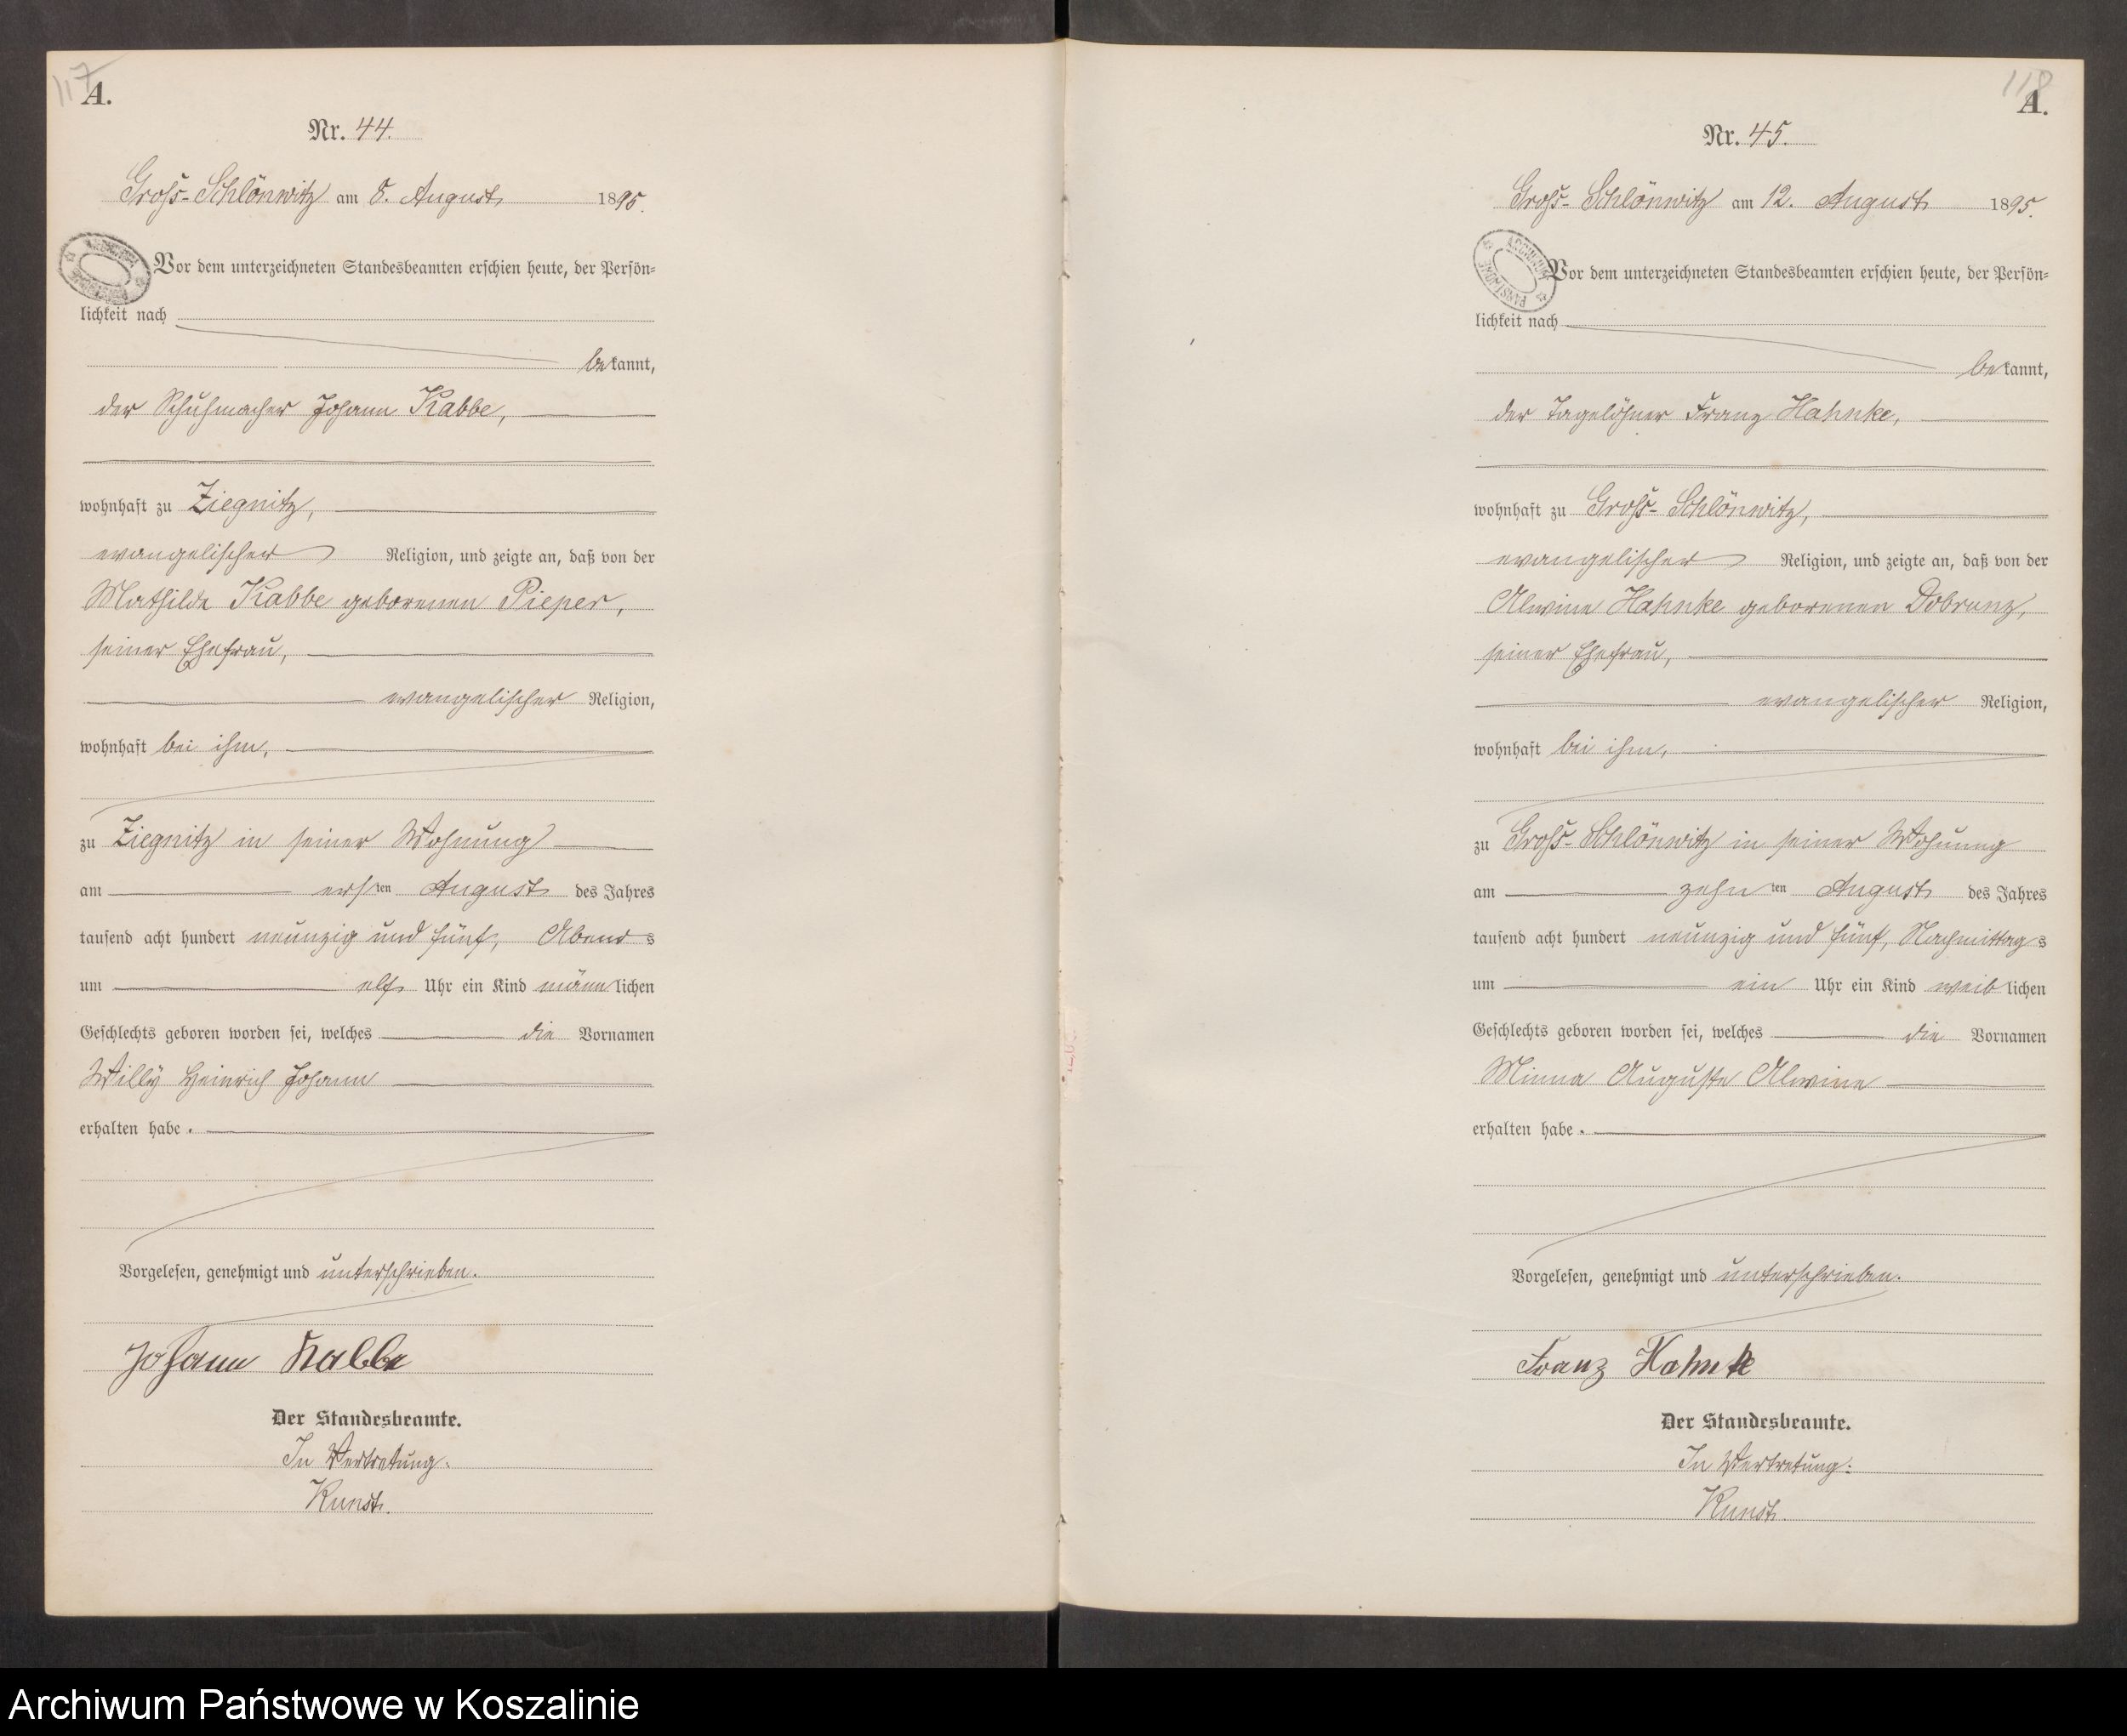 117
A.
Nr. 44.
Gross-Schlönwitz am 8. August 1895.
ARCHIWUM PAŃSTWOWE
Vor dem unterzeichneten Standesbeamten erschien heute, der Persön-
lichkeit nach
bekannt,
der Schuhmacher Johann Kabbe,
wohnhaft zu Ziegnitz,
evangelischer Religion, und zeigte an, daß von der
Mathilde Kabbe geborenen Pieper,
seiner Ehefrau,
evangelischer Religion,
wohnhaft bei ihm,
zu Ziegnitz in seiner Wohnung
am ersten August des Jahres
tausend acht hundert neunzig und fünf, Abends
um elf Uhr ein Kind männlichen
Geschlechts geboren worden sei, welches die Vornamen
Willy Heinrich Johann
erhalten habe.
Vorgelesen, genehmigt und unterschrieben.
Johann Kabbe
Der Standesbeamte.
In Vertretung:
Kunst.
118
A.
Nr. 45.
Gross-Schlönwitz am 12. August 1895.
ARCHIWUM PAŃSTWOWE
Vor dem unterzeichneten Standesbeamten erschien heute, der Persön-
lichkeit nach
bekannt,
der Tagelöhner Franz Hahnke,
wohnhaft zu Gross-Schlönwitz,
evangelischer Religion, und zeigte an, daß von der
Alwine Hahnke geborenen Dobrunz,
seiner Ehefrau,
evangelischer Religion,
wohnhaft bei ihm,
zu Gross-Schlönwitz in seiner Wohnung
am zehnten August des Jahres
tausend acht hundert neunzig und fünf, Nachmittags
um ein Uhr ein Kind weiblichen
Geschlechts geboren worden sei, welches die Vornamen
Minna Auguste Alwine
erhalten habe.
Vorgelesen, genehmigt und unterschrieben.
Franz Hahnke
Der Standesbeamte.
In Vertretung:
Kunst.
Archiwum Państwowe w Koszalinie